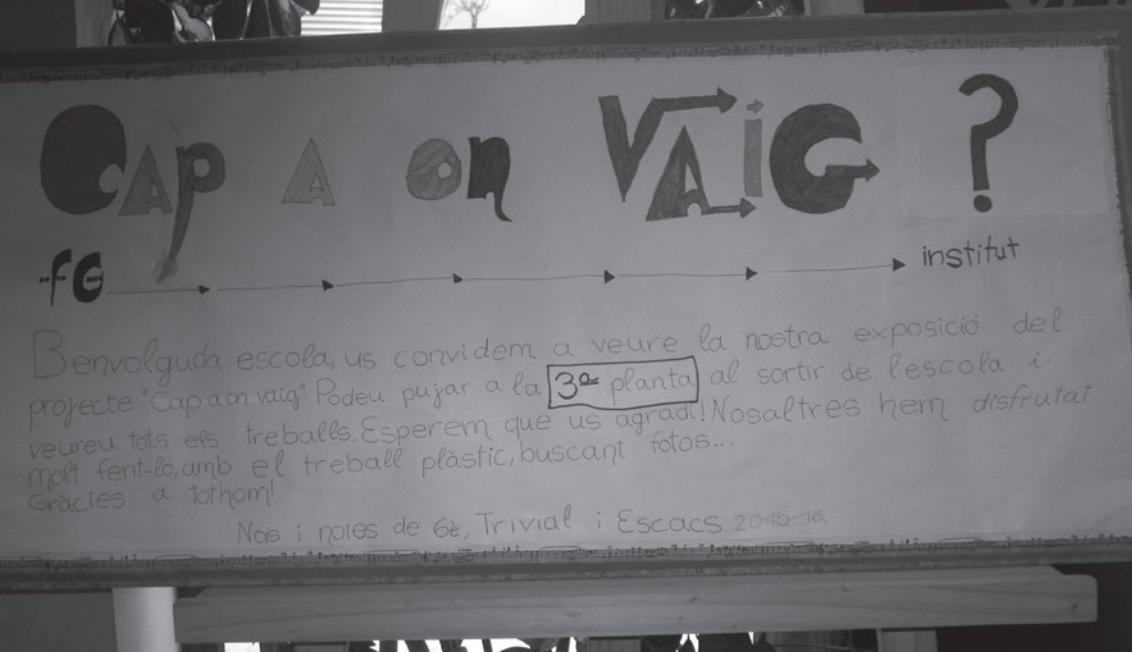 Cap A on VAiG ?
fc institut
Benvolguda escola, us convidem a veure la nostra exposició del
projecte "Cap a on vaig". Podeu pujar a la 3ª planta al sortir de l'escola i
veureu tots els treballs. Esperem que us agradi! Nosaltres hem disfrutat
molt fent-lo, amb el treball plàstic, buscant fotos...
Gràcies a tothom!
Nois i noies de 6è, Trivial i Escacs. 2015-16.